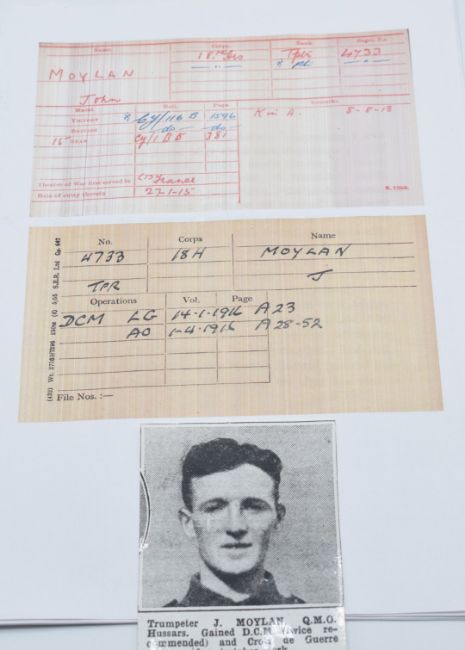 Name. Corps. Rank. Regtl. No.
MOYLAN 18. Hrs Tptr 4733
" pte
John
Medal. Roll. Page. Remarks
VICTORY CY/116 B 1596 K in A. 8-8-18
BRITISH do do
15 STAR CY/1 B B 381
Theatre of War first served in (1) France
Date of entry therein 22-1-15
K. 1380.
No. Corps Name
4733 18H MOYLAN
TPR J
Operations Vol. Page
DCM LG 14-1-1916 A23
AO 1-4-1916 A 28-52
File Nos. :—
Trumpeter J. MOYLAN, Q.M.O.
Hussars. Gained D.C.M. (twice re-
commended) and Croix de Guerre